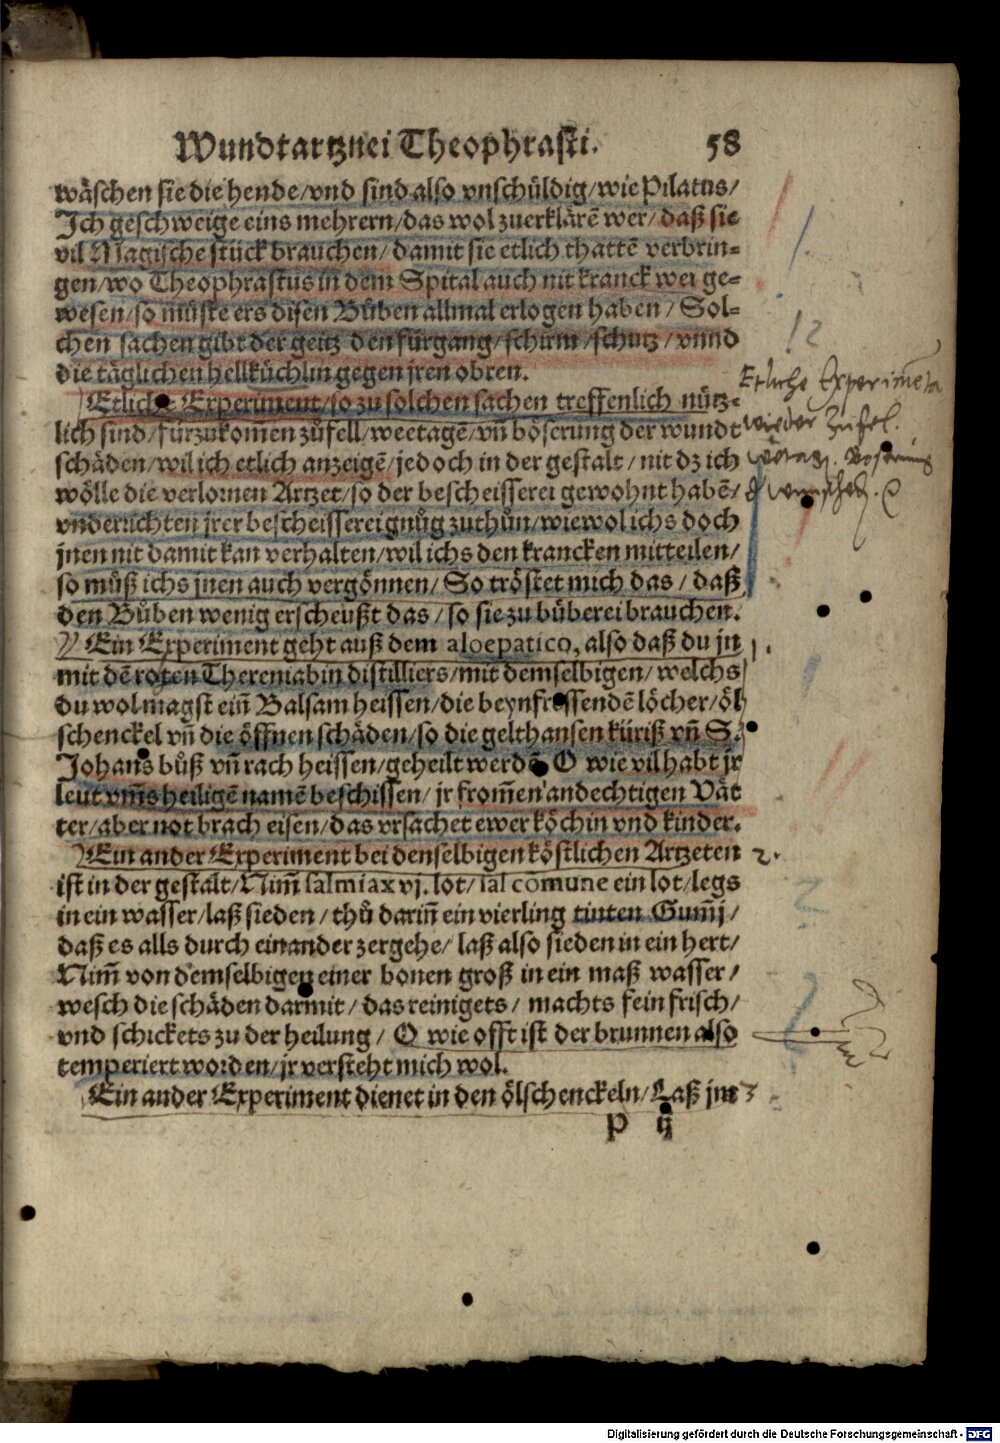 Wundtartznei Theophrasti. 58
wäschen sie die hende/vnd sind also vnschüldig/wie Pilatus/
Ich geschweige eins mehrern/das wol zuerklärẽ wer/daß sie
vil Magische stück brauchen/damit sie etlich thattẽ verbrin-
gen/wo Theophrastus in dem Spital auch nit kranck wer ge-
wesen/so müste ers disen Bůben allmal erlogen haben/Sol-
chen sachen gibt der geitz den fürgang/schirm/schutz/vnnd
die täglichen hellküchlin gegen jren obren.
Etliche Experiment/so zu solchen sachen treffenlich nütz-
lich sind/fürzukom̃en zůfell/weetagẽ/vñ böserung der wundt
schäden/wil ich etlich anzeigẽ/jedoch in der gestalt/nit dz ich
wölle die verlornen Artzet/so der bescheisserei gewohnt habẽ/
vnderrichten jrer bescheisserei gnůg zuthůn/wiewol ichs doch
jnen nit damit kan verhalten/wil ichs den krancken mitteilen/
so můß ichs jnen auch vergönnen/So tröstet mich das/daß
den Bůben wenig erscheußt das/so sie zu bůberei brauchen.
Ein Experiment geht auß dem aloepatico, also daß du jn
mit dẽ roten Thereniabin distilliers/mit demselbigen/welchs
du wol magst eiñ Balsam heissen/die beynfressendẽ löcher/öl
schenckel vñ die öffnen schäden/so die gelthansen küriß vñ S.
Johans bůß vñ rach heissen/geheilt werdẽ O wie vil habt jr
leut vm̃s heiligẽ namẽ beschissen/jr from̃en andechtigen Vät
ter/aber not brach eisen/das vrsachet ewer köchin vnd kinder.
Ein ander Experiment bei denselbigen köstlichen Artzeten
ist in der gestalt/Nim̃ salmiax vj. lot/sal cõmune ein lot/legs
in ein wasser/laß sieden/thů dariñ ein vierling tinten Gum̃j/
daß es alls durch einander zergehe/laß also sieden in ein hert/
Nim̃ von demselbigen einer bonen groß in ein maß wasser/
wesch die schäden darmit/das reinigets/machts fein frisch/
vnd schickets zu der heilung/O wie offt ist der brunnen also
temperiert worden/jr versteht mich wol.
Ein ander Experiment dienet in den ölschenckeln/Laß jm
P ij
Etliche Experimeta
wieder Zufel.
1.
2.
3
12
Digitalisierung gefördert durch die Deutsche Forschungsgemeinschaft - DFG